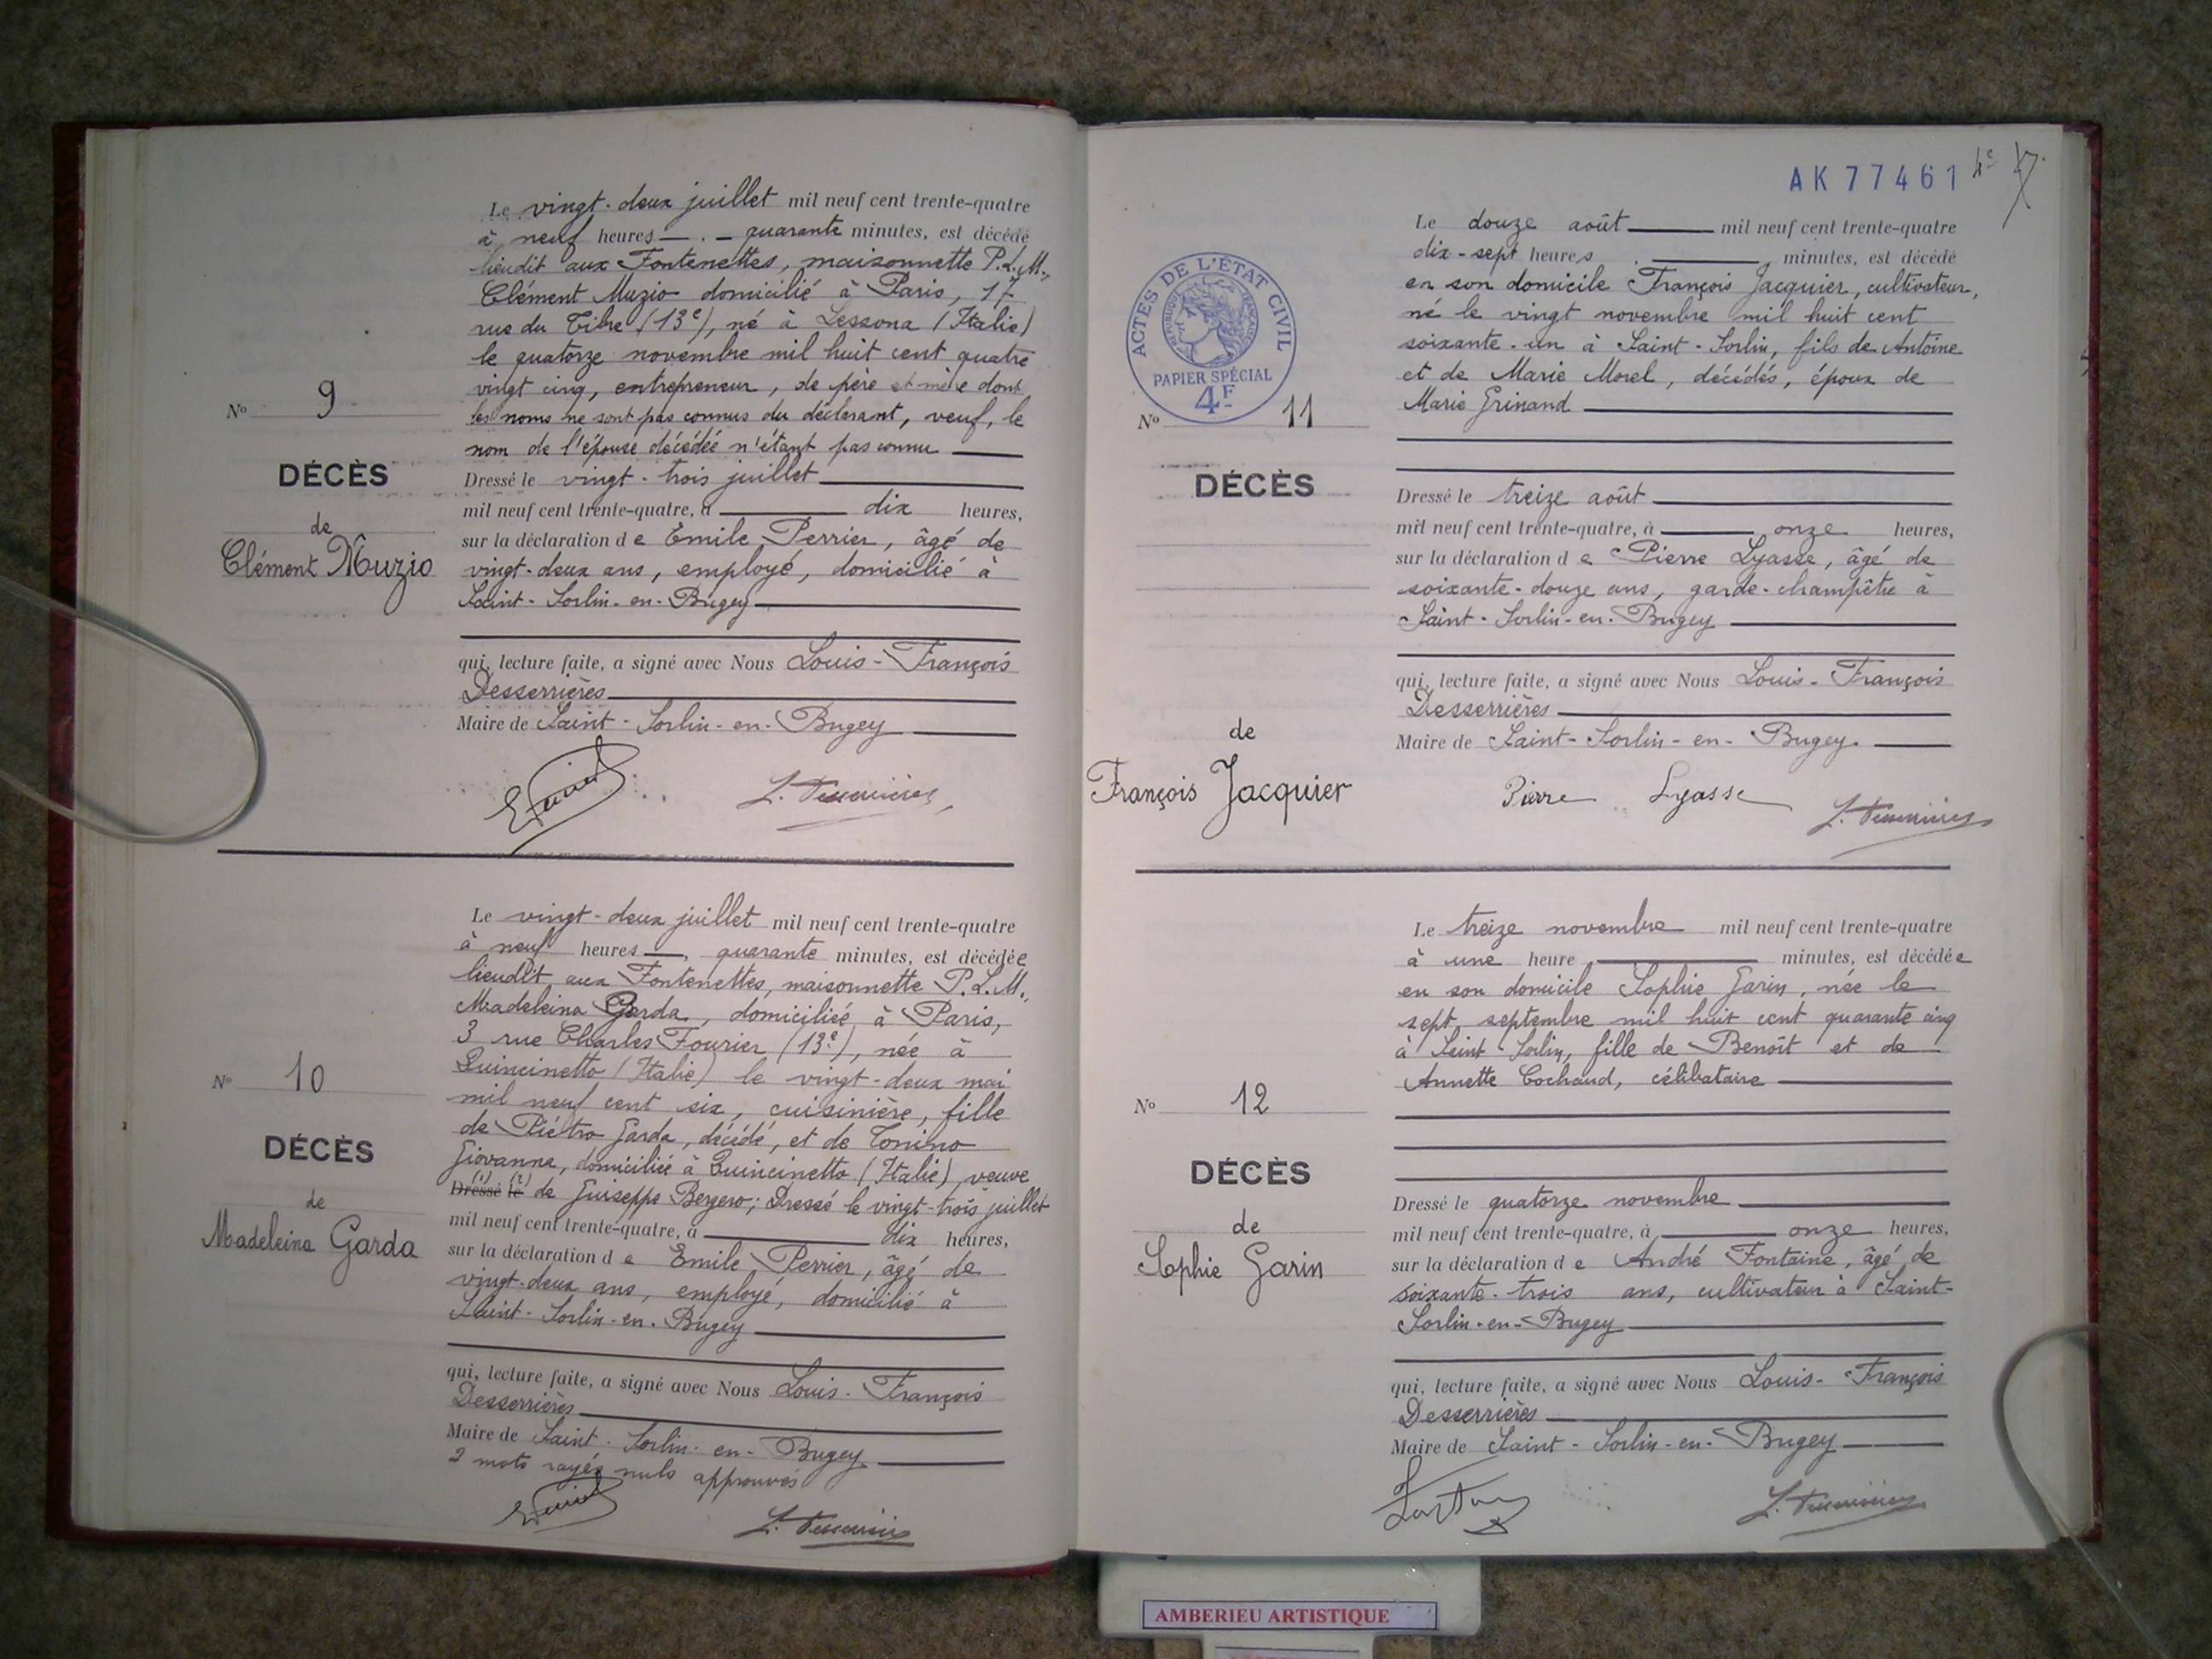 Le vingt-deux juillet mil neuf cent trente-quatre
à neuf heures quarante minutes, est décédé
lieudit aux Fontenettes, maisonnette P.L.M.,
Clément Muzio domicilié à Paris, 17
rue du Tibre (13e), né à Lessona (Italie)
le quatorze novembre mil huit cent quatre
vingt cinq, entrepreneur, de père et mère dont
les noms ne sont pas connus du déclarant, veuf, le
nom de l'épouse décédée n'étant pas connu
No 9
DÉCÈS
de
Clément Muzio
Dressé le vingt-trois juillet
mil neuf cent trente-quatre, à dix heures,
sur la déclaration de Emile Perrier, âgé de
vingt-deux ans, employé, domicilié à
Saint-Sorlin-en-Bugey
qui, lecture faite, a signé avec Nous Louis-François
Desserrières
Maire de Saint-Sorlin-en-Bugey
L. Desserrières
Le vingt-deux juillet mil neuf cent trente-quatre
à neuf heures, quarante minutes, est décédée
lieudit aux Fontenettes, maisonnette P.L.M.,
Madeleina Garda, domiciliée à Paris,
3 rue Charles Fourier (13e), née à
Quincinetto (Italie) le vingt-deux mai
mil neuf cent six, cuisinière, fille
de Piétro Garda, décédé, et de Tonino
Giovanna, domiciliée à Quincinetto (Italie), veuve
Dressé le de Guiseppe Bergero; Dressé le vingt-trois juillet
No 10
DÉCÈS
de
Madeleina Garda
mil neuf cent trente-quatre, à dix heures,
sur la déclaration de Emile Perrier, âgé de
vingt-deux ans, employé, domicilié à
Saint-Sorlin-en-Bugey
qui, lecture faite, a signé avec Nous Louis-François
Desserrières
Maire de Saint-Sorlin-en-Bugey
2 mots rayés nuls approuvés
L. Desserrières
AK 77461
ACTES DE L'ÉTAT CIVIL
RÉPUBLIQUE FRANÇAISE
PAPIER SPÉCIAL
4F
Le douze août mil neuf cent trente-quatre
dix-sept heures minutes, est décédé
en son domicile François Jacquier, cultivateur,
né le vingt novembre mil huit cent
soixante-un à Saint-Sorlin, fils de Antoine
et de Marie Morel, décédés, époux de
Marie Grinand
No 11
DÉCÈS
de
François Jacquier
Dressé le treize août
mil neuf cent trente-quatre, à onze heures,
sur la déclaration de Pierre Lyasse, âgé de
soixante-douze ans, garde-champêtre à
Saint-Sorlin-en-Bugey
qui, lecture faite, a signé avec Nous Louis-François
Desserrières
Maire de Saint-Sorlin-en-Bugey.
Pierre Lyasse L. Desserrières
Le treize novembre mil neuf cent trente-quatre
à une heure minutes, est décédée
en son domicile Sophie Garin, née le
sept septembre mil huit cent quarante cinq
à Saint-Sorlin, fille de Benoît et de
Annette Cochaud, célibataire
No 12
DÉCÈS
de
Sophie Garin
Dressé le quatorze novembre
mil neuf cent trente-quatre, à onze heures,
sur la déclaration de André Fontaine, âgé de
soixante-trois ans, cultivateur à Saint-
Sorlin-en-Bugey
qui, lecture faite, a signé avec Nous Louis-François
Desserrières
Maire de Saint-Sorlin-en-Bugey
L. Desserrières
AMBERIEU ARTISTIQUE